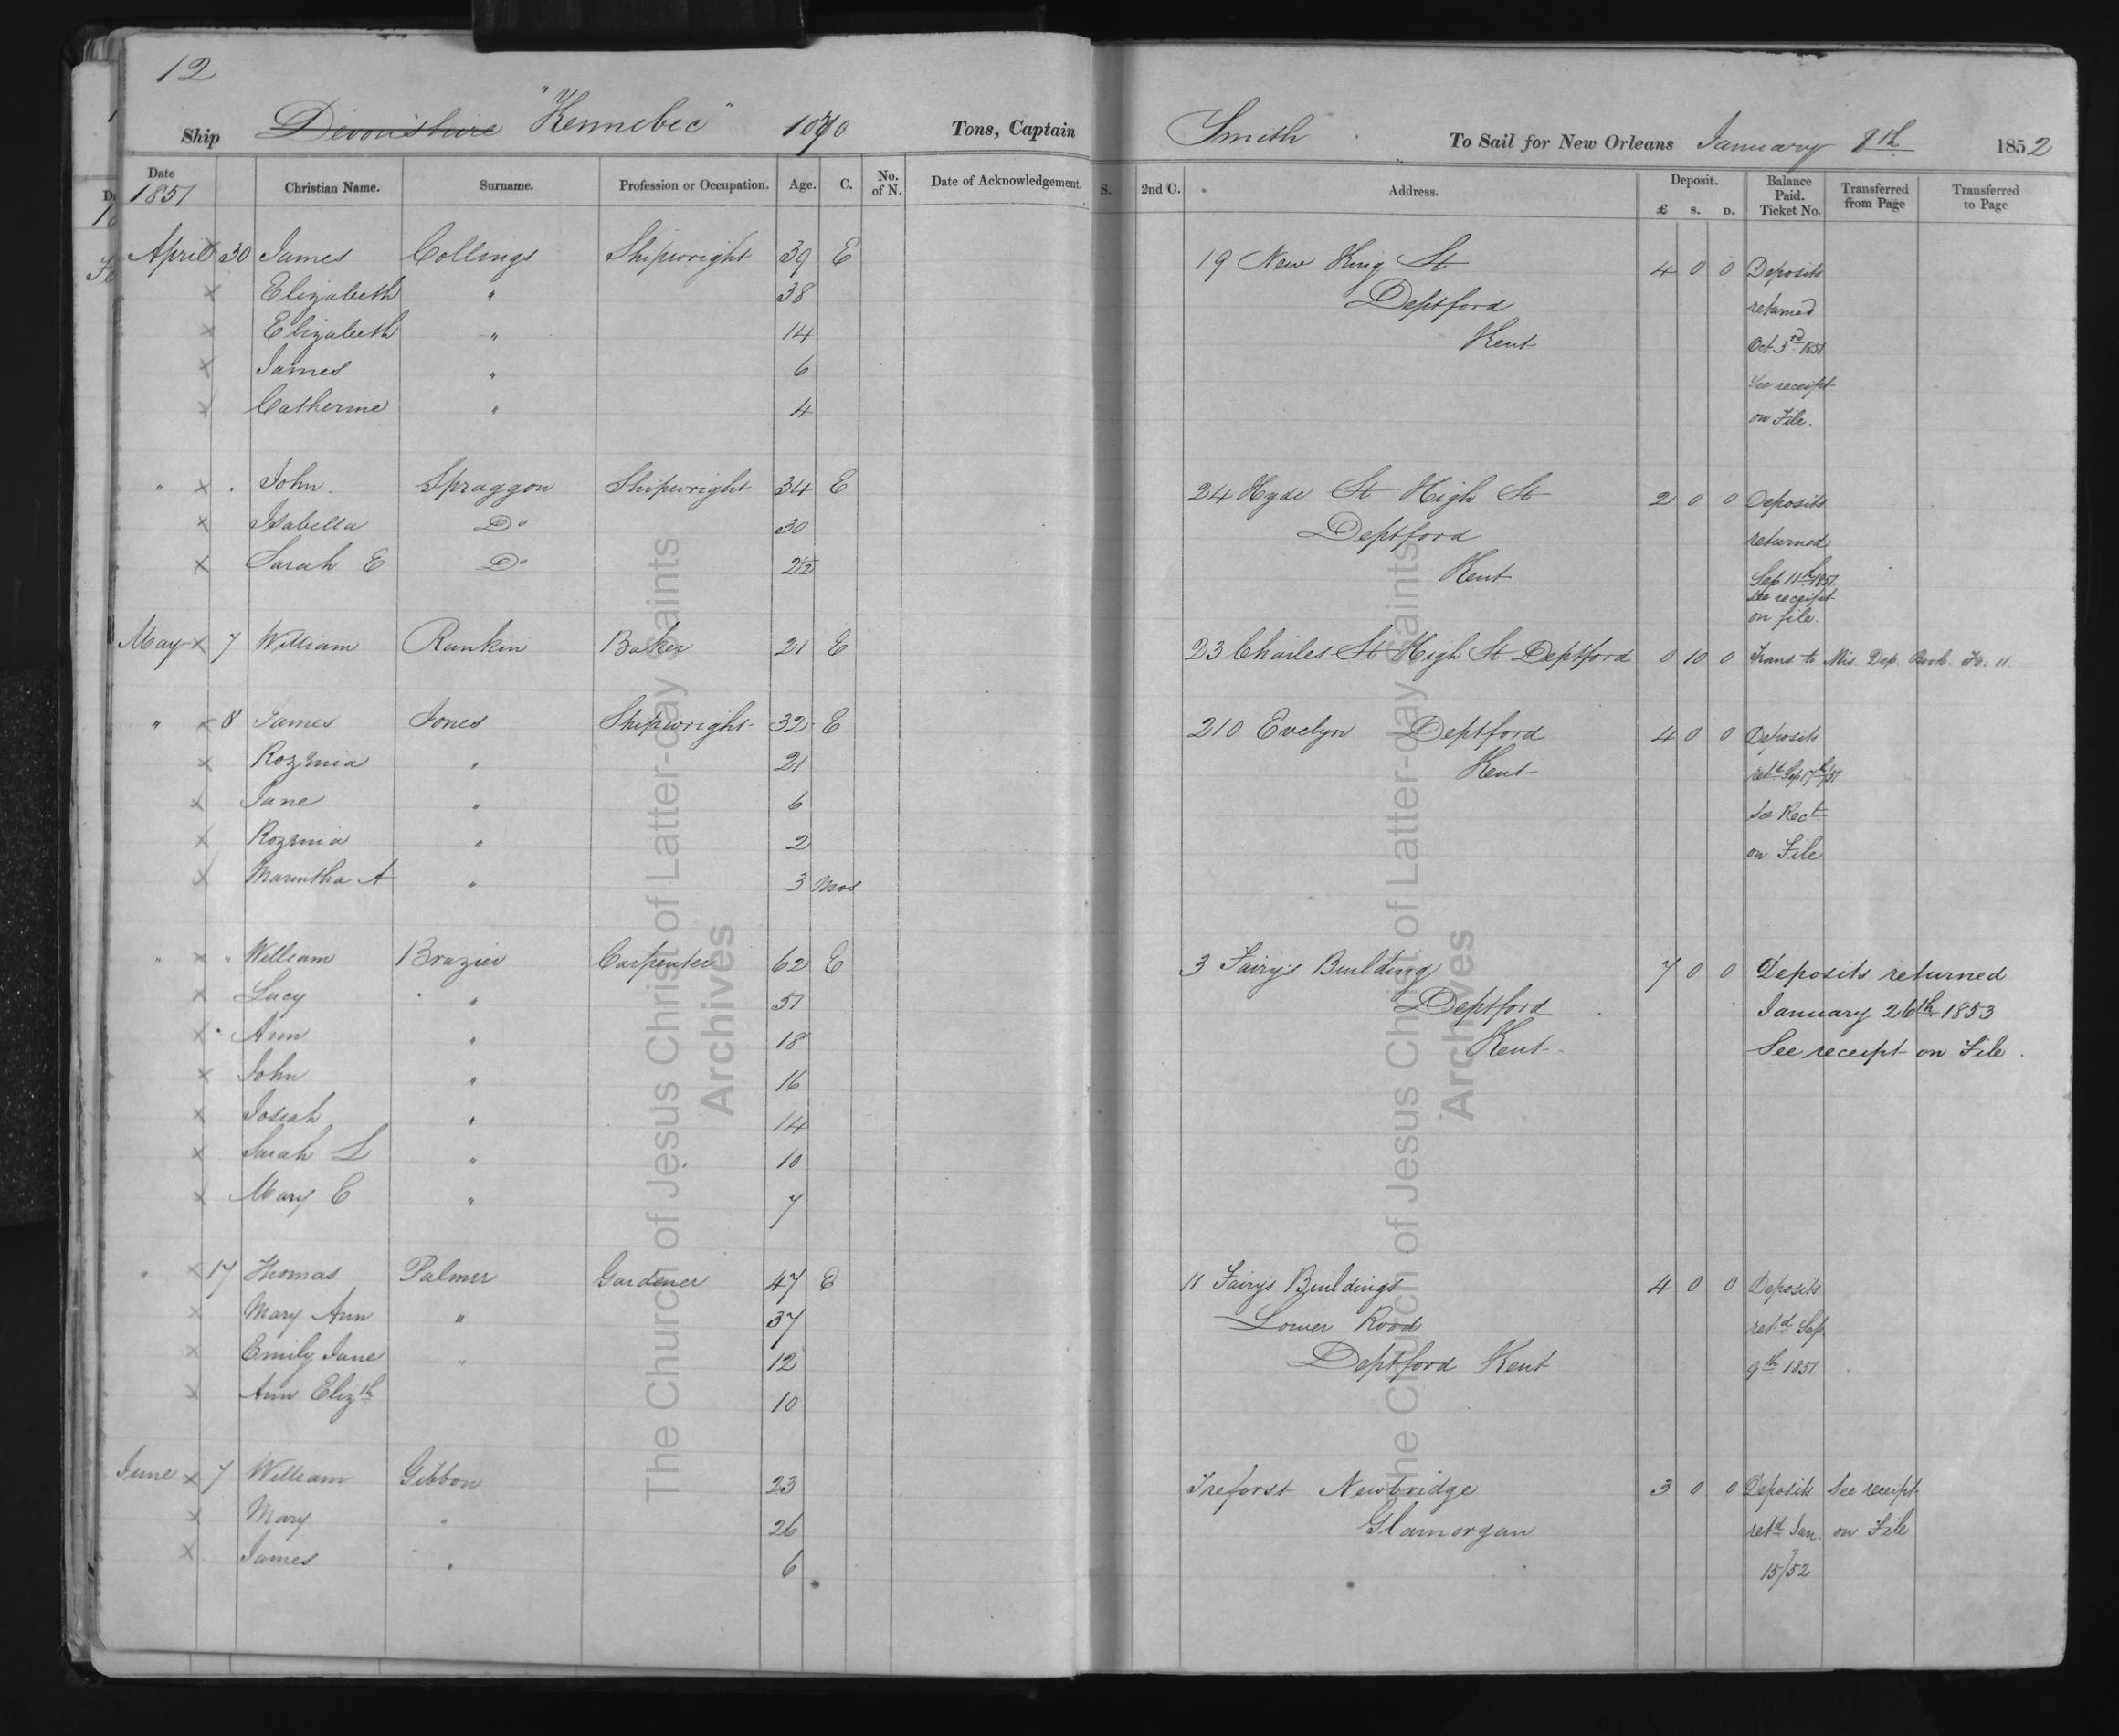 12
Ship Devonshire "Kennebec" 1070 Tons, Captain Smith To Sail for New Orleans January 8th 1852
Date 1851 Christian Name. Surname. Profession or Occupation. Age. C. No. of N. Date of Acknowledgement. S. 2nd C. Address. Deposit. £ S. D. Balance Paid. Ticket No. Transferred from Page Transferred to Page
April x 30 James Collings Shipwright 39 E 19 New King St 4 0 0 Deposits
x Elizabeth " 38 Deptford returned
x Elizabeth " 14 Kent Oct 3rd 1851
x James " 6 See receipt
x Catherine " 4 on File.
" x . John. Spraggon Shipwright 34 E 24 Hyde St High St 2 0 0 Deposits
x Isabella Do 30 Deptford returned
x Sarah E Do 2½ Kent Sep 11th 1851.
see receipt
on file.
May x 7 William Rankin Baker 21 E 23 Charles St High St Deptford 0 10 0 Trans. to Mis. Dep. Book Fo. 11.
" x 8 James Jones Shipwright 32 E 210 Evelyn Deptford 4 0 0 Deposits
x Rozenia " 21 Kent retd Sep 17th/51
x Jane " 6 See Rect
x Rozenia " 2 on File
x Marintha A " 3 Mos
" x " William Brazier Carpenter 62 E 3 Fairy's Building 7 0 0 Deposits returned
x Lucy " 51 Deptford January 26th 1853
x Ann " 18 Kent See receipt on File.
x John " 16
x Josiah " 14
x Sarah L " 10
x Mary E " 7
" x 17 Thomas Palmer Gardener 47 E 11 Fairy's Buildings 4 0 0 Deposits
x Mary Ann " 37 Lower Road retd Sep.
x Emily Jane " 12 Deptford Kent 9th 1851
x Ann Elizth 10
June x 7 William Gibbon 23 Treforst Newbridge 3 0 0 Deposits See receipt
x Mary " 26 Glamorgan retd Jan. on File
x James " 6 15/52
The Church of Jesus Christ of Latter-day Saints
Archives
The Church of Jesus Christ of Latter-day Saints
Archives